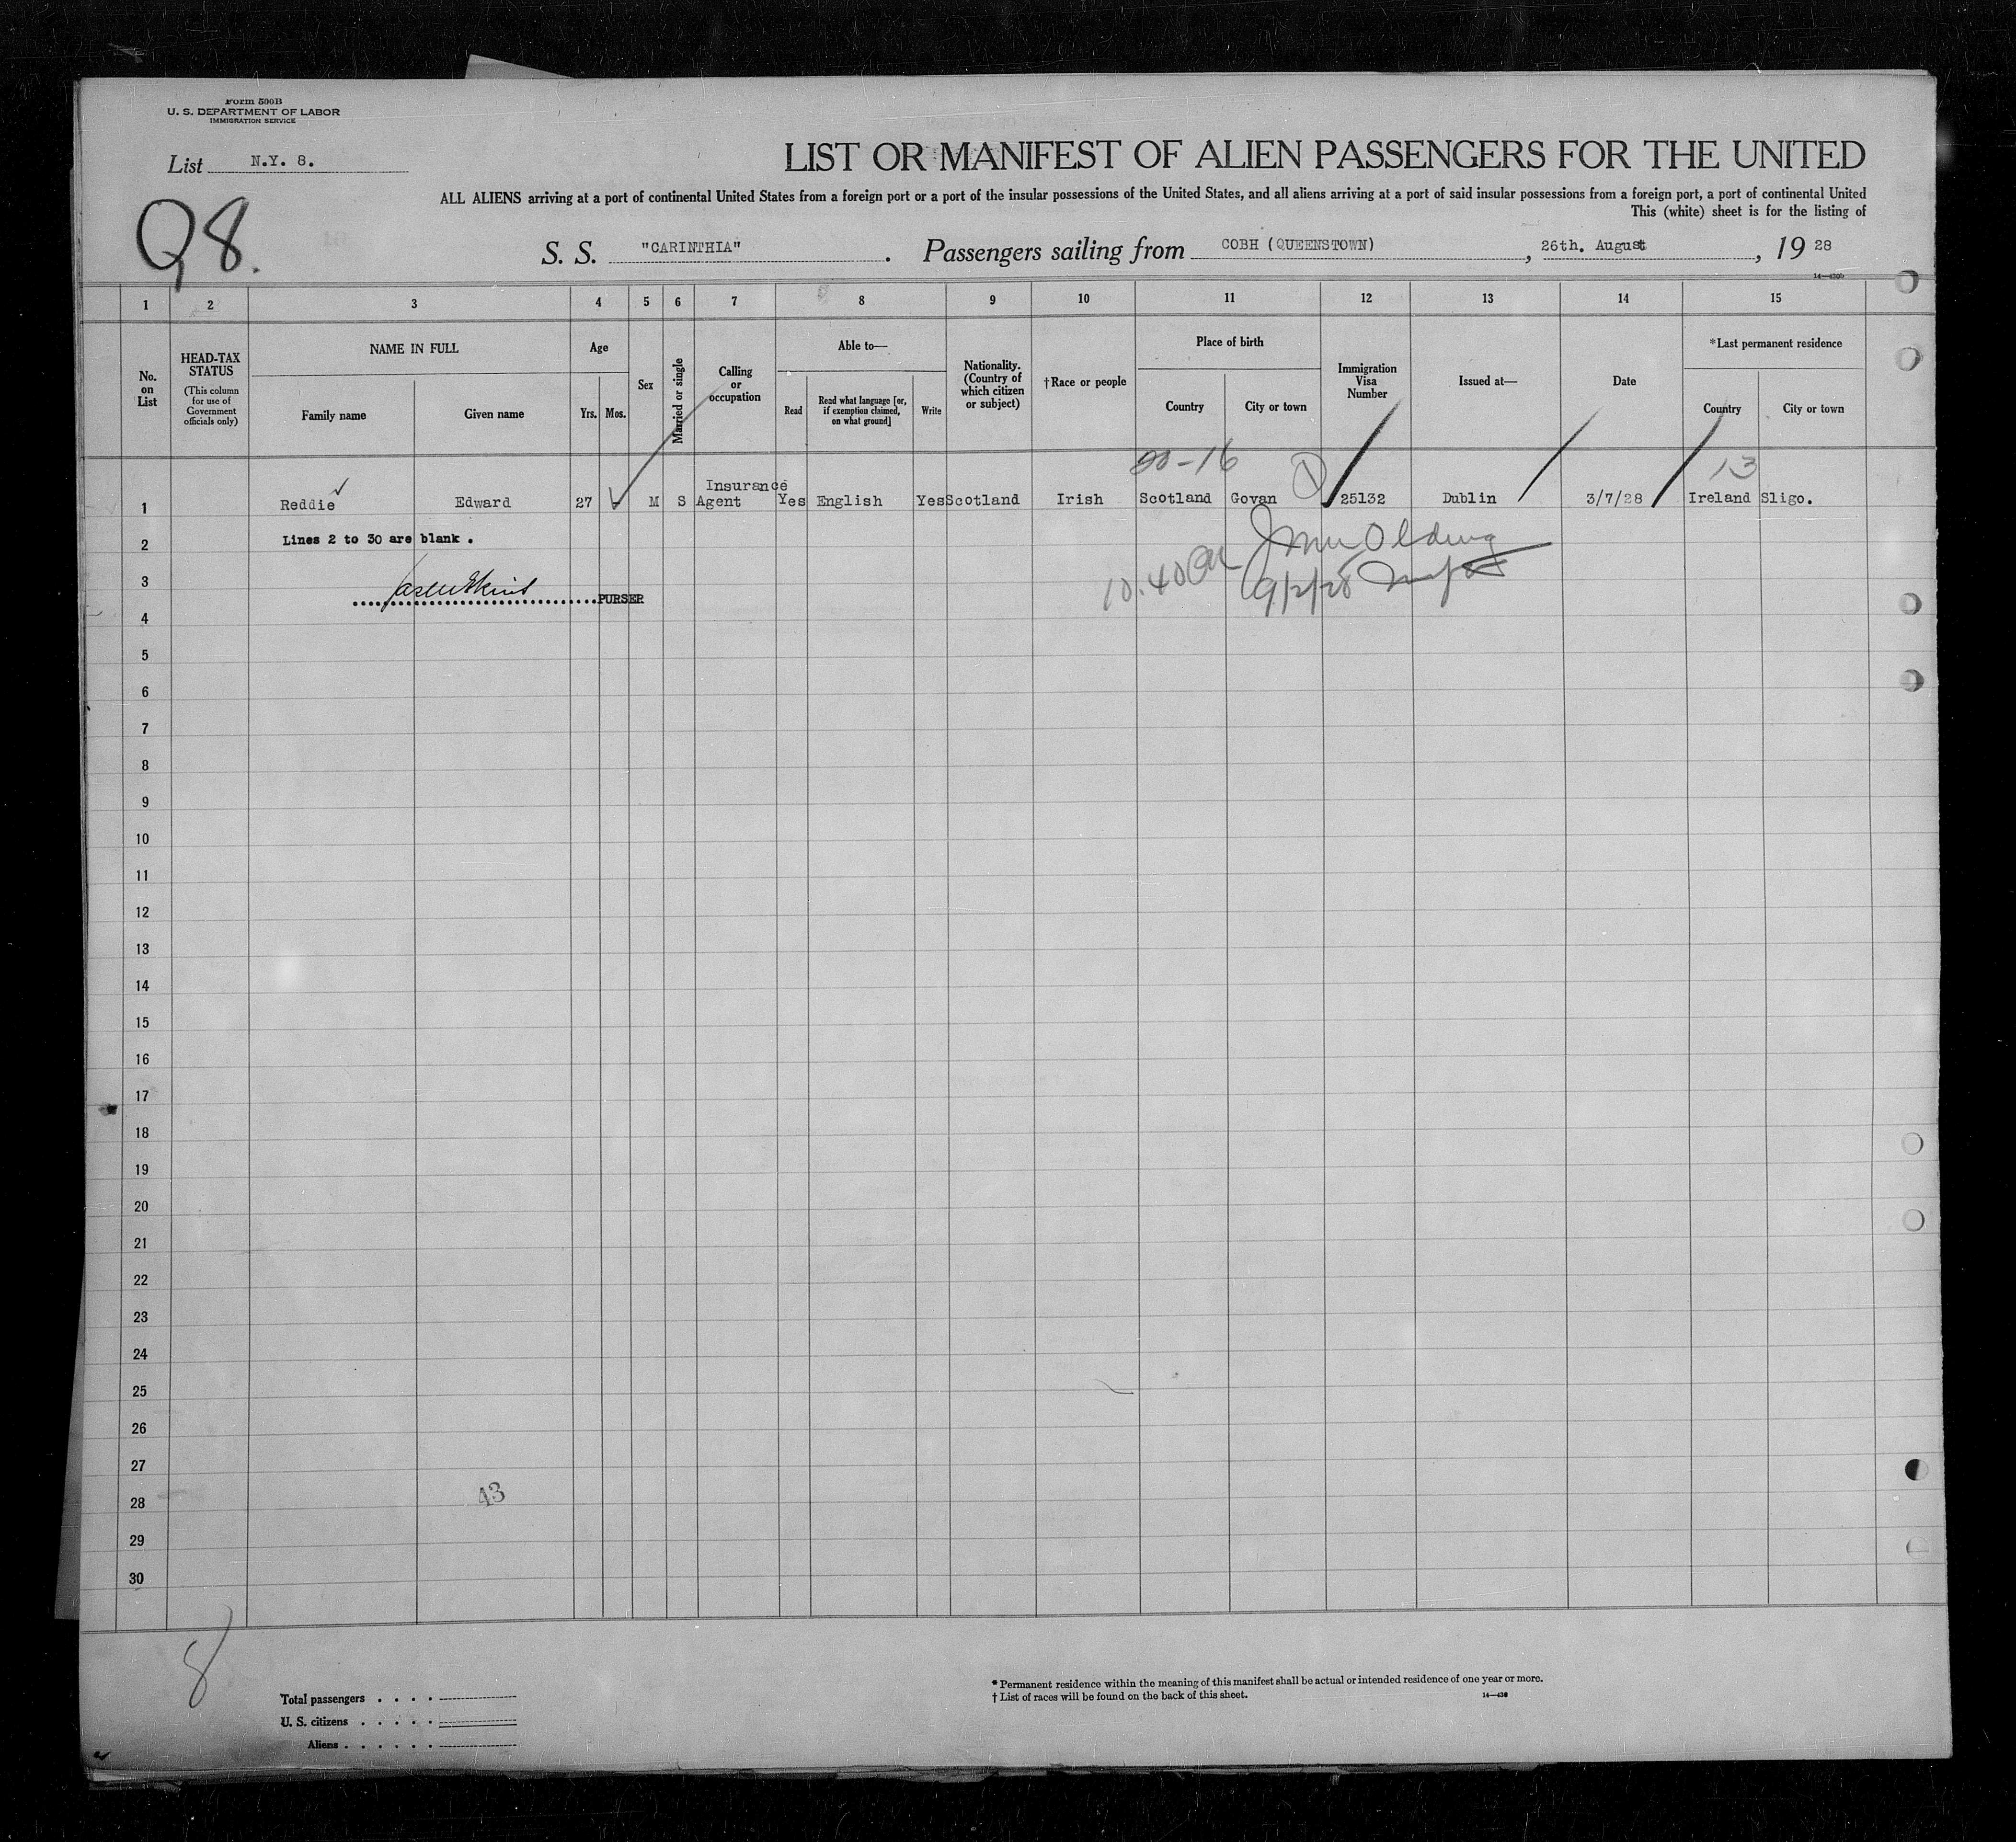 Form 500B
U. S. DEPARTMENT OF LABOR
IMMIGRATION SERVICE
List N.Y. 8.
LIST OR MANIFEST OF ALIEN PASSENGERS FOR THE UNITED
ALL ALIENS arriving at a port of continental United States from a foreign port or a port of the insular possessions of the United States, and all aliens arriving at a port of said insular possessions from a foreign port, a port of continental United
This (white) sheet is for the listing of
Q8.
S. S. "CARINTHIA". Passengers sailing from COBH (QUEENSTOWN), 26th. August, 19 28
1 2 3 4 5 6 7 8 9 10 11 12 13 14 15
No. on List
HEAD-TAX STATUS
(This column for use of Government officials only)
NAME IN FULL
Family name Given name
Age
Yrs. Mos.
Sex
Married or single
Calling or occupation
Able to—
Read
Read what language [or, if exemption claimed, on what ground]
Write
Nationality. (Country of which citizen or subject)
†Race or people
Place of birth
Country City or town
Immigration Visa Number
Issued at—
Date
*Last permanent residence
Country City or town
13
1 Reddie Edward 27 M S Insurance Agent Yes English Yes Scotland Irish Scotland Govan 25132 Dublin 3/7/28 Ireland Sligo.
2 Lines 2 to 30 are blank.
10.40
9/2/28
3 PURSER
4
5
6
7
8
9
10
11
12
13
14
15
16
17
18
19
20
21
22
23
24
25
26
27
28 43
29
30
8
Total passengers . . . .
U. S. citizens . . . . .
Aliens . . . . . .
* Permanent residence within the meaning of this manifest shall be actual or intended residence of one year or more.
† List of races will be found on the back of this sheet.